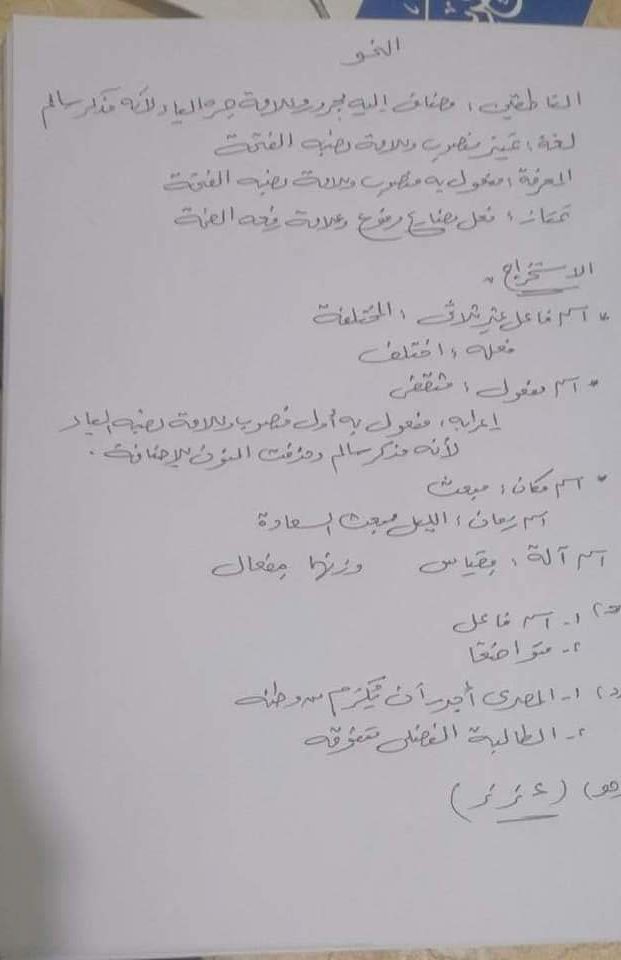 النحو
الناطقين: مضاف إليه مجرور وعلامة جره الياء لأنه مذكر سالم
لغة: تمييز منصوب وعلامة نصبه الفتحة
المعرفة: مفعول به منصوب وعلامة نصبه الفتحة
تمتاز: فعل مضارع مرفوع وعلامة رفعه الضمة
الاستخراج
* اسم فاعل غير ثلاثى: المختلفة
فعله: اختلف
* اسم مفعول: مثقفى
إعرابه: مفعول به أول منصوب وعلامة نصبه الياء
لأنه مذكر سالم وحذفت النون للإضافة.
* اسم مكان: مبعث
اسم زمان: الليل مبعث السعادة
اسم آلة: مقياس وزنها مفعال
ـ ١- اسم فاعل
٢- متواضعا
د) ١- المصرى أجدر أن يُكرَم من وطنه
٢- الطالبة الفضلى متفوقة
هـ) (غزر)